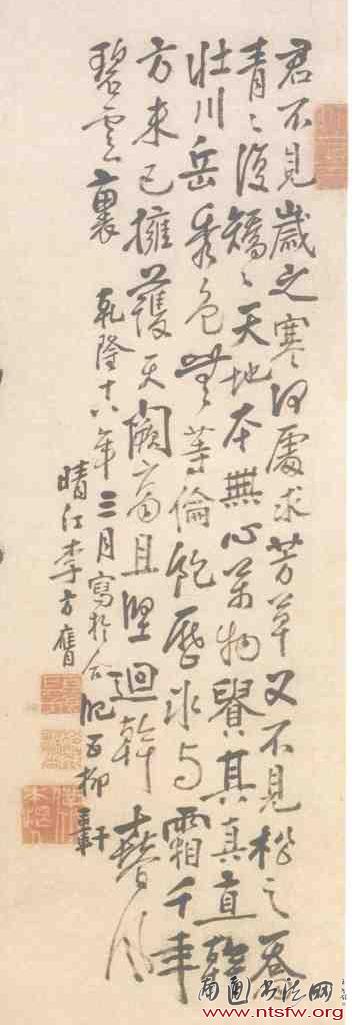 君不見歲之寒何處求芳草又不見松之喬
青〻復矯〻天地本無心萬物貴其真直幹
壯川岳秀色無等倫飽歷冰与霜千年
方未已擁護天闕高且堅迴幹春風
碧雲裏 乾隆十八年三月寫於合肥五柳軒
晴江李方膺
南通书法网
www.ntsfw.org